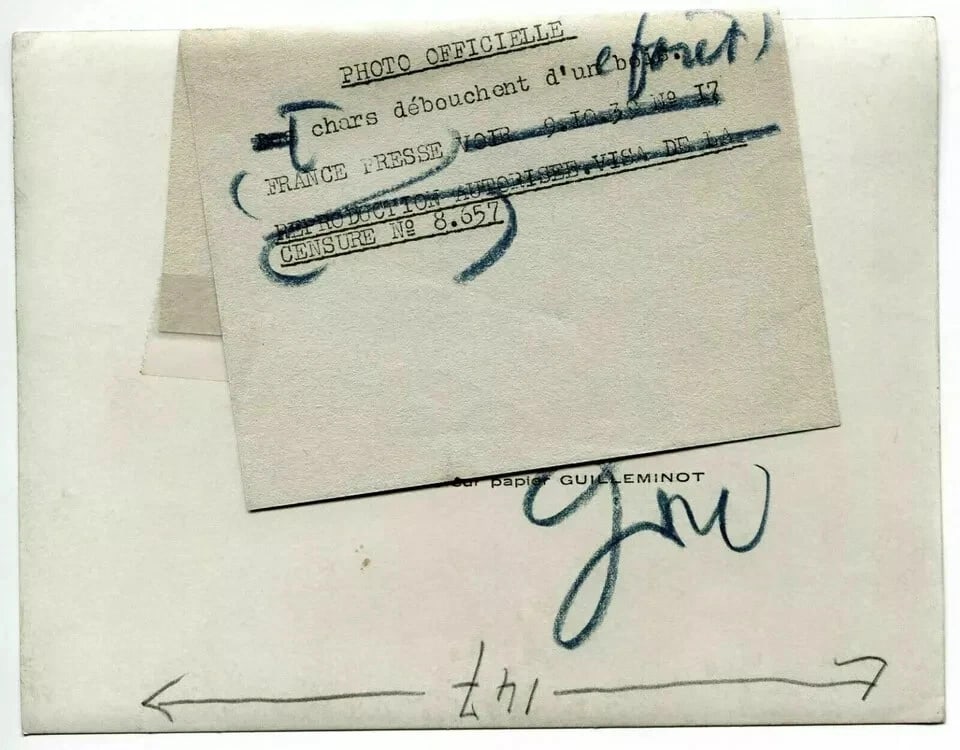 PHOTO OFFICIELLE
chars débouchent d'un bois.
e forêt)
FRANCE PRESSE VOIR 9.10.39 Nº 17
REPRODUCTION AUTORISEE.VISA DE LA
CENSURE Nº 8.657
Sur papier GUILLEMINOT
147